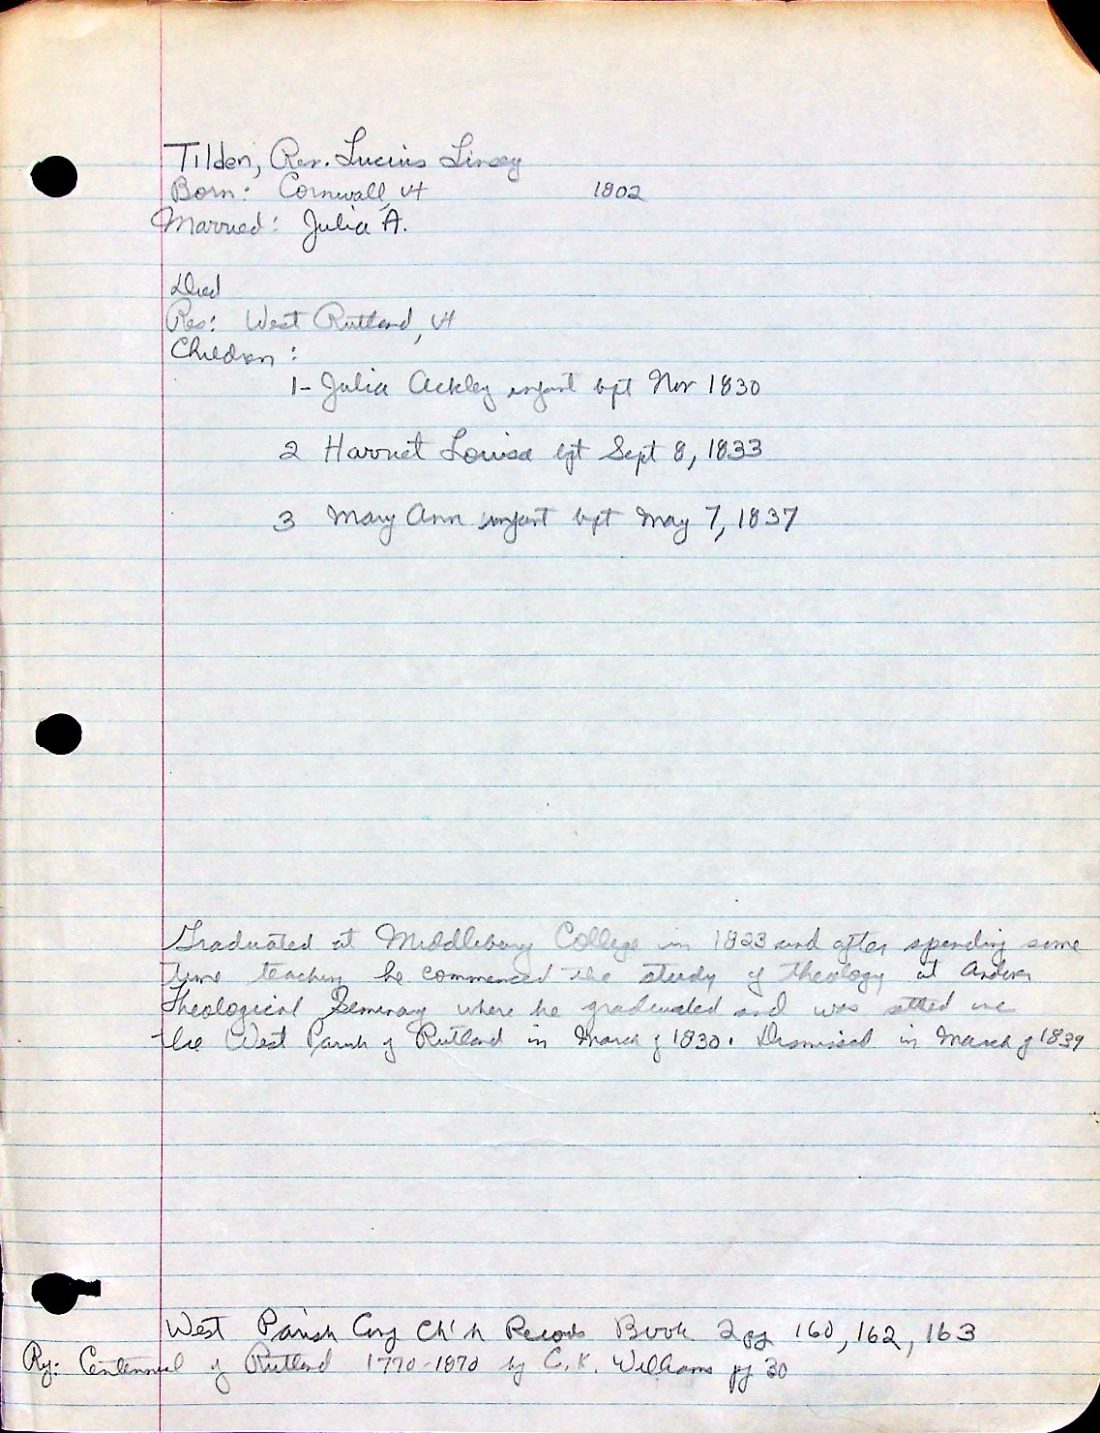 Tilden, Rev. Lucius Linsey
Born: Cornwall, Vt 1802
Married: Julia A.
Died
Res: West Rutland, Vt
Children:
1- Julia Ackley infant bpt Nov 1830
2 Harriet Louisa bpt Sept 8, 1833
3 Mary Ann infant bpt May 7, 1837
Graduated at Middlebury College in 1823 and after spending some
time teaching he commenced the study of theology at Andover
Theological Seminary where he graduated and was settled in
the West Parish of Rutland in March of 1830. Dismissed in March of 1839
West Parish Cong Ch'h Records Book 2 pg 160, 162, 163
Centennial of Rutland 1770-1870 by C. K. Williams pg 30